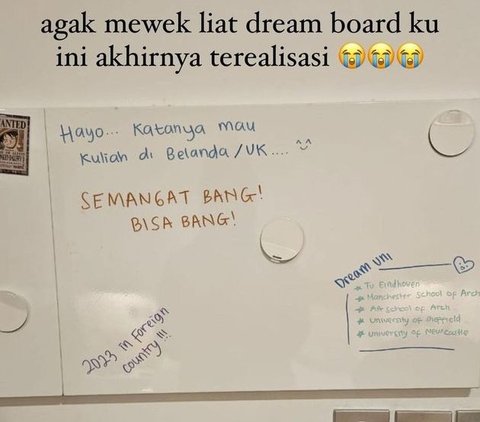 agak mewek liat dream board ku
ini akhirnya terealisasi 😭😭😭
WANTED
Hayo... Katanya mau
Kuliah di Belanda/UK....
SEMANGAT BANG!
BISA BANG!
Dream UNI
TU Eindhoven
Manchester School of Arch
AA School of Arch
University of Sheffield
University of Newcastle
2023 in Foreign
Country!!!